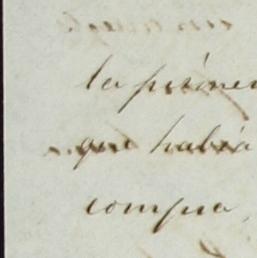 la primer
que había
compra,